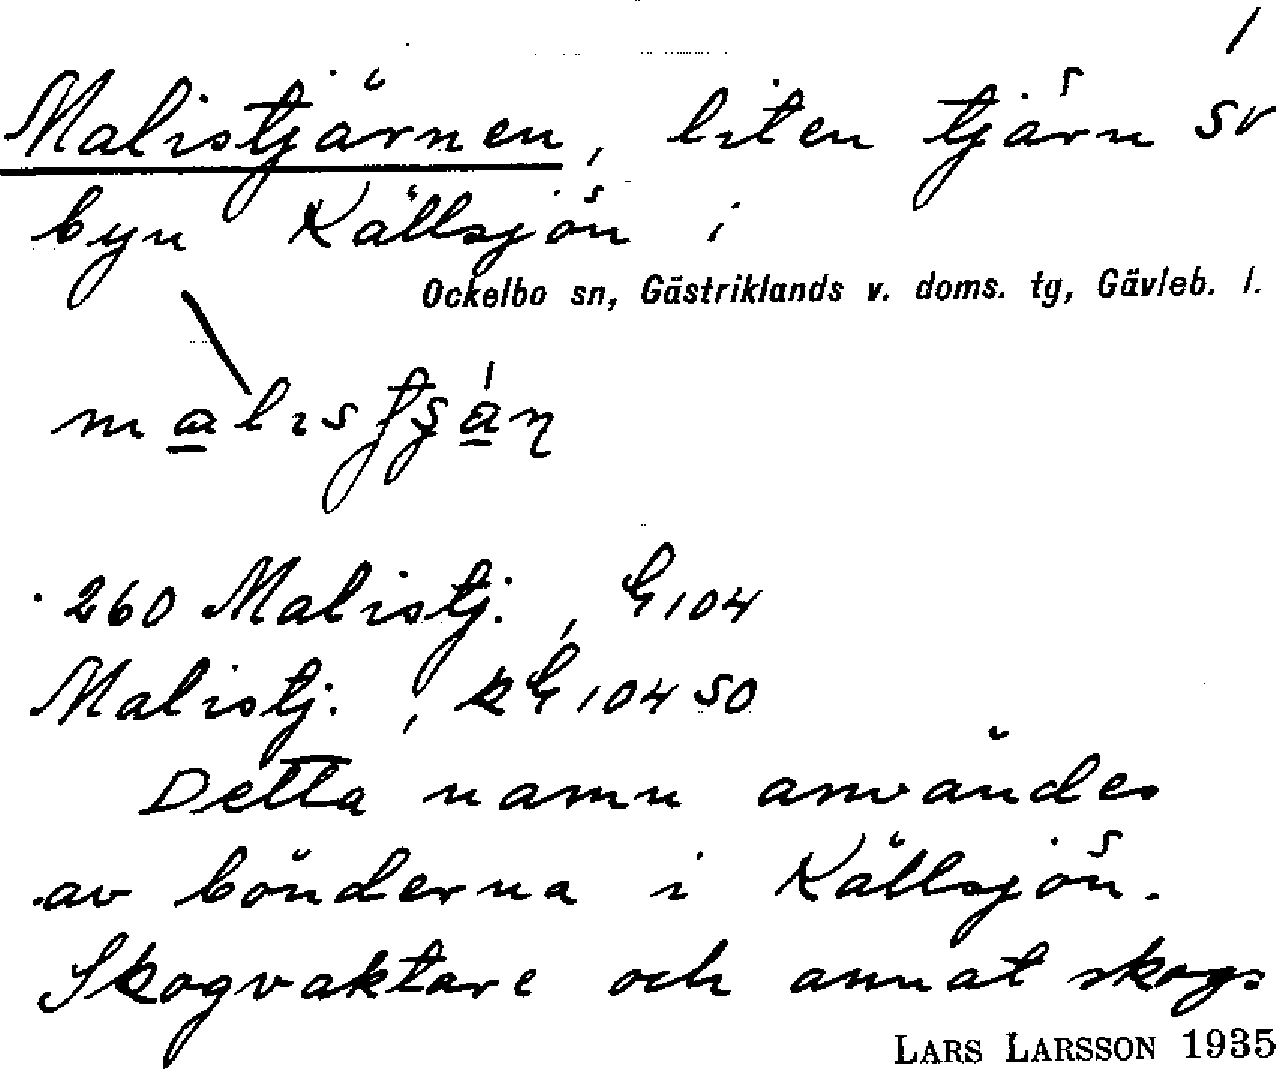 1
Malistjärnen, liten tjärn SV
byn Källsjön i
Ockelbo sn, Gästriklands v. doms. tg, Gävleb. l.
260 Malistj., G 104
Malistj., kG 104 50
Detta namn användes
av bönderna i Källsjön.
Skogvaktare och annat skogs
LARS LARSSON 1935